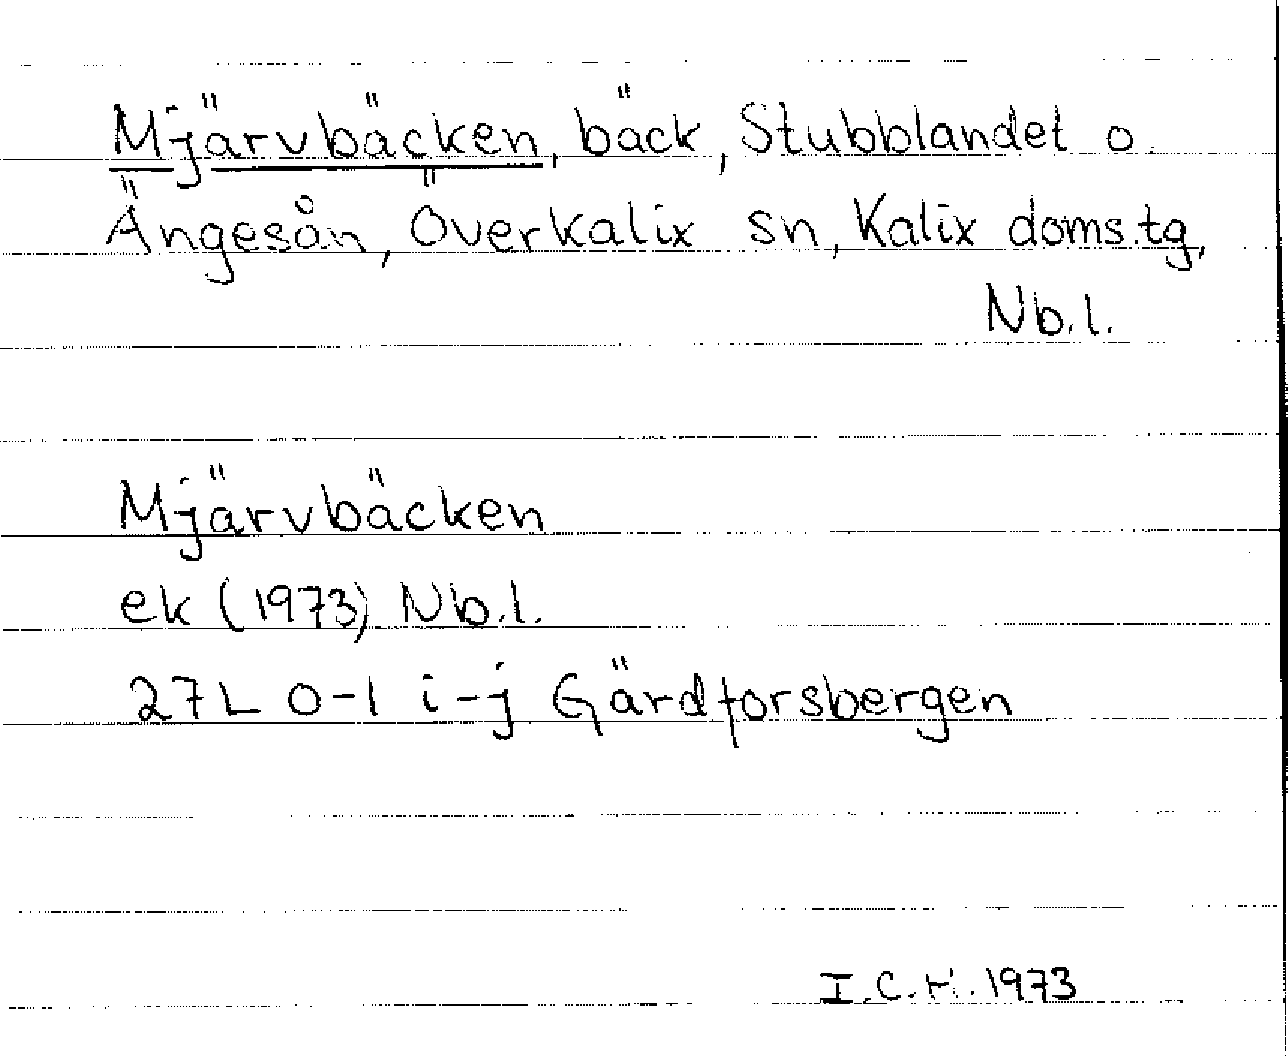 Mjärvbäcken, bäck, Stubblandet o.
Ängesån, Överkalix sn, Kalix doms.tg,
Nb.l.
Mjärvbäcken
ek (1973) Nb.l.
27L 0-1 i-j Gärdforsbergen
I.C.H. 1973